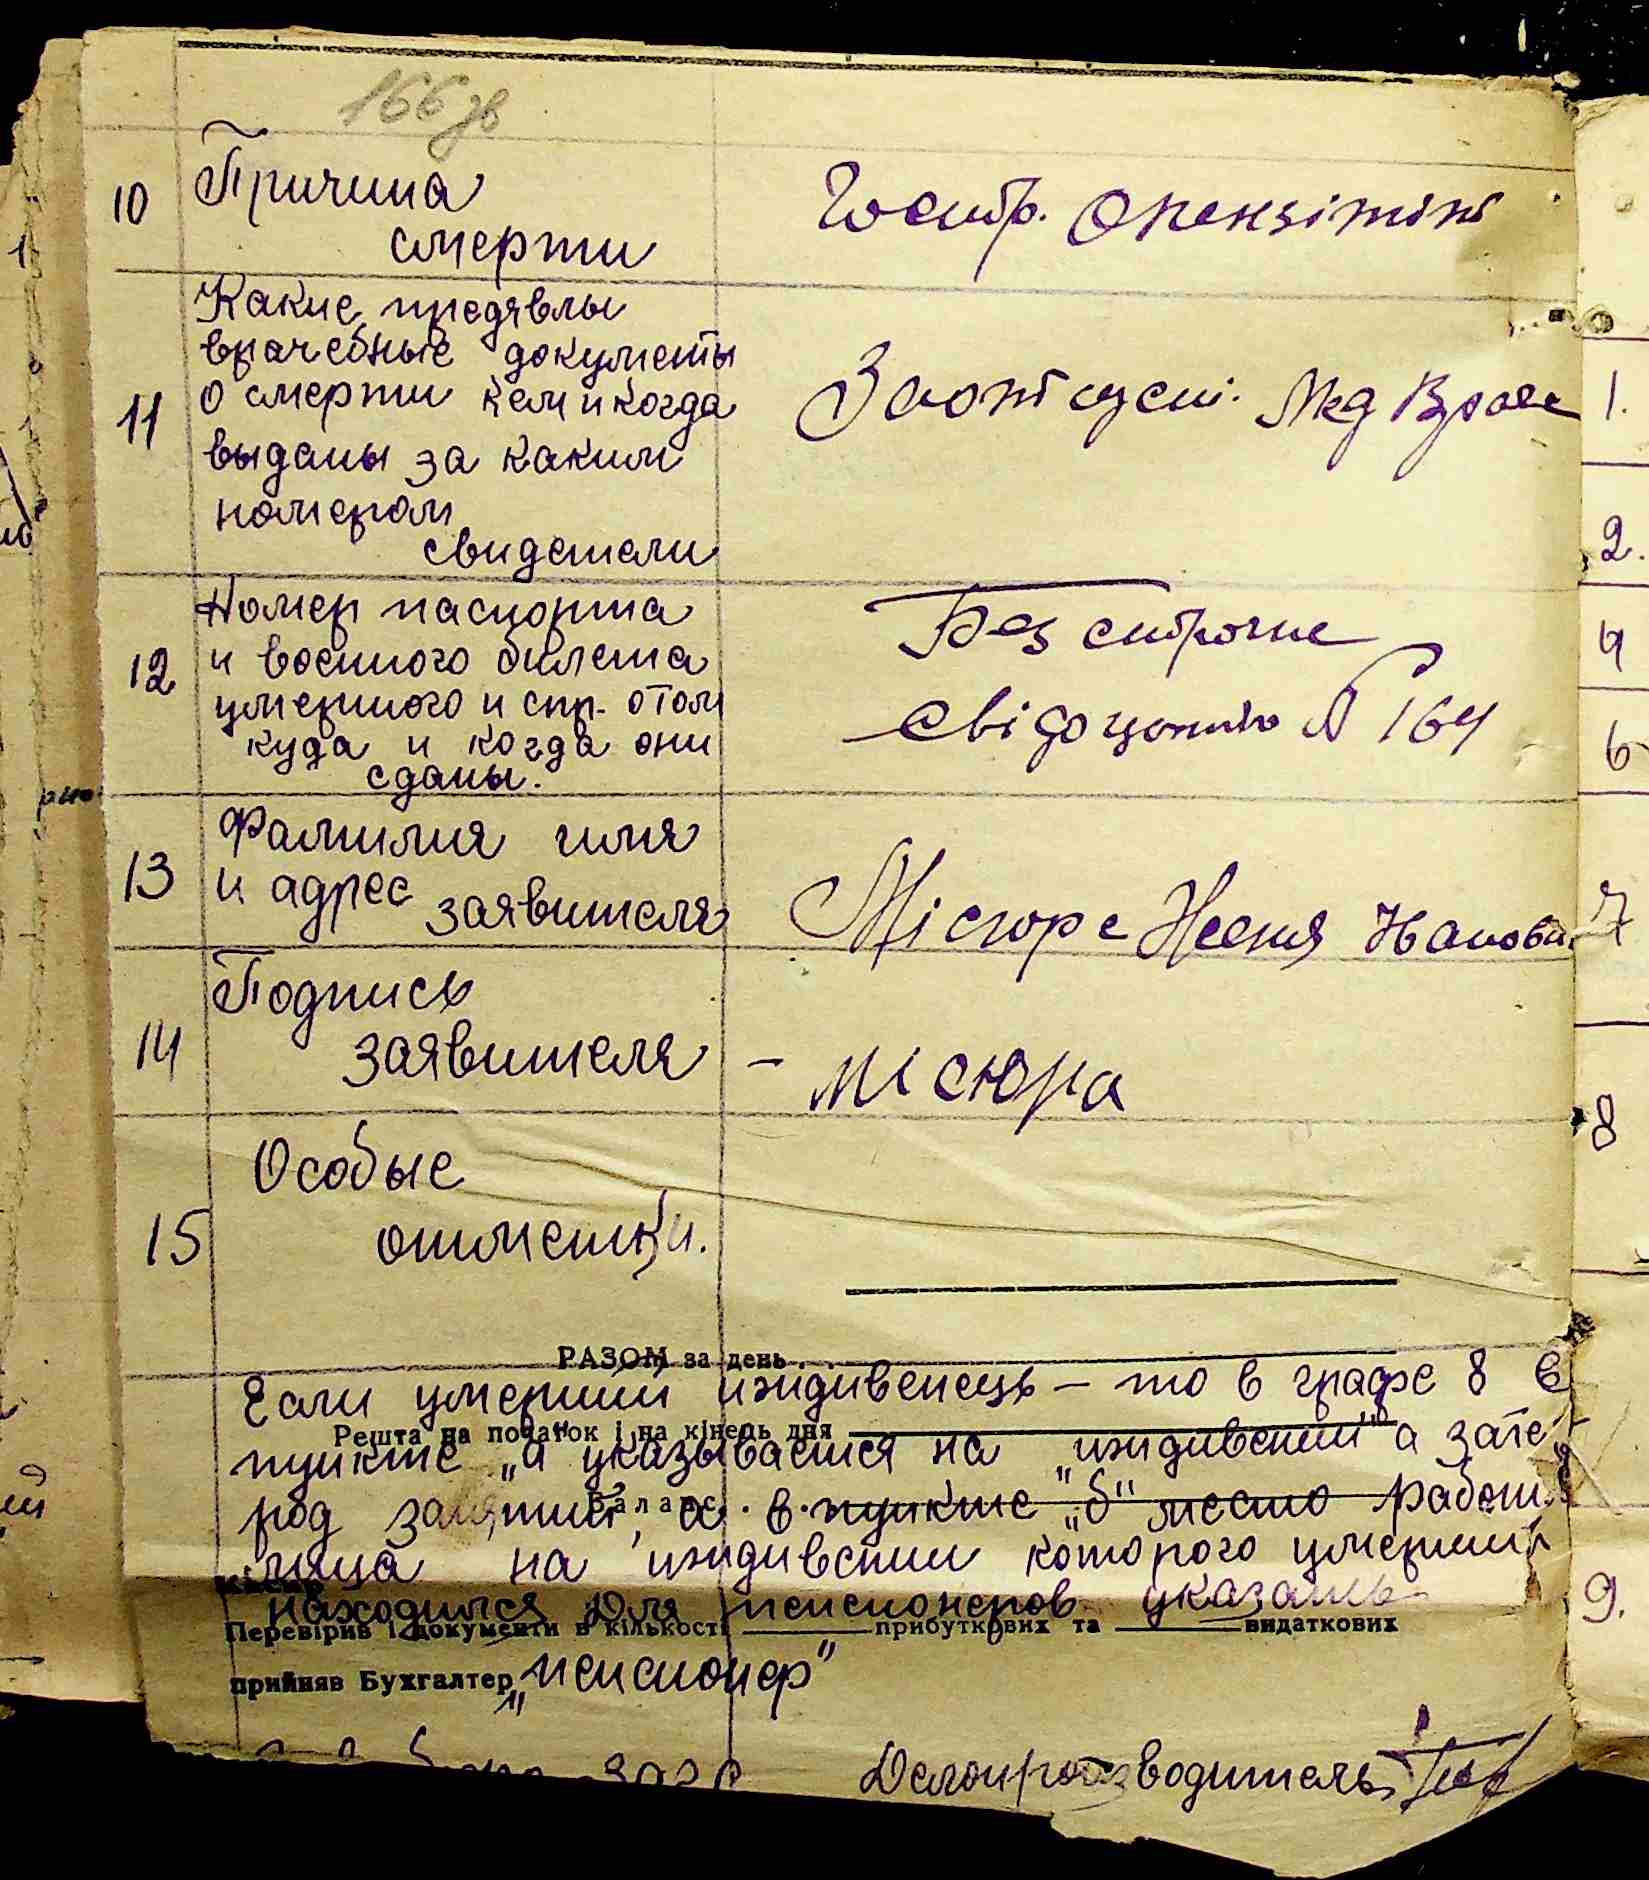 166 зв
10 Причина
смерти
Гостр.
Какие предявлы
врачебные документы
11 о смерти кем и когда
выданы за каким
номером
свидетели
Номер паспорта
12 и военного билета
умершого и спр. отом
куда и когда они
сданы.
Без строчне
свідоцтво № 164
Фамилия имя
13 и адрес заявителя
Місюра
Подпись
14 заявителя – місюра
Особые
15 отметки.
РАЗОМ за день
Если умерший иждивенець – то в графе 8 в
Решта на початок і на кінець дня
пункте „а" указывается на „иждивении" а зате
Баланс
род занятий, а в пункте „б" место работы
лица на иждивении которого умерший
Касир
находился Для пенсионеров указать
Перевірив і документи в кількості прибуткових та видаткових
прийняв Бухгалтер
„пенсионер"
загс Делопроизводитель
1.
2.
4
6
7
8
9.